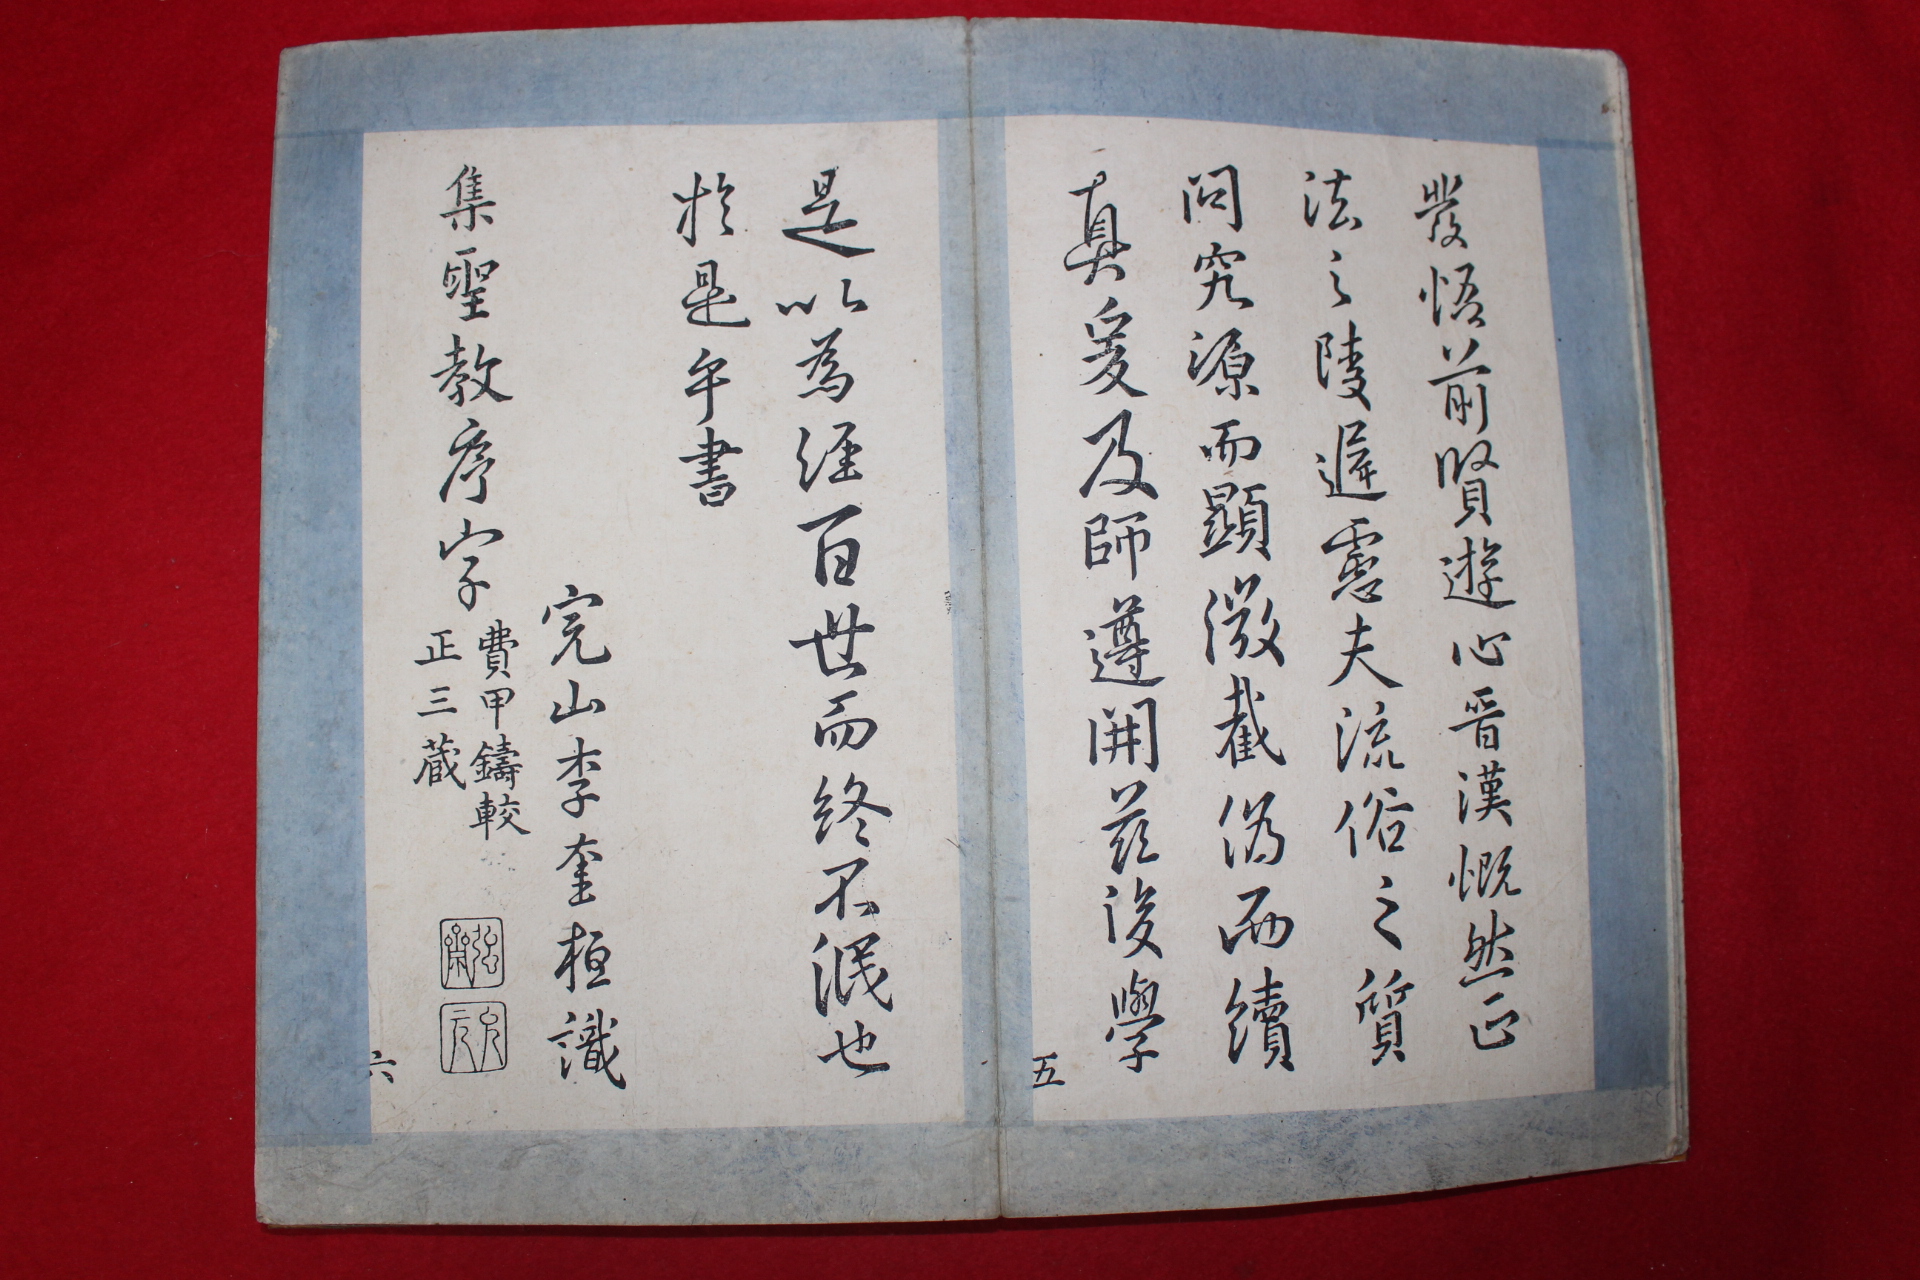 發悟前賢遊心晉漢慨然正
法之陵遲憲夫流俗之質
問究源而顯微截偽而續
真爰及師遵開茲後學
五
是以為經百世而終不濺也
於是乎書
完山李奎桓識
集聖教序字
費甲鑄較
正三藏
六